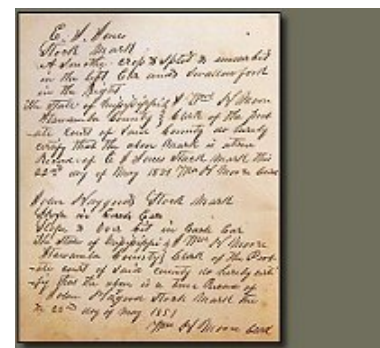 E. S. Jones
Stock Mark
A Smooth crop & split & underbit
in the left Ear and Swallowfork
in the Right
The State of Mississippi } I Wm H Moore
Itawamba County } Clerk of the Prob
ate court of Said County do hereby
certify that the above Mark is a true
Record of E S Jones Stock Mark this
22nd day of May 1851 Wm H Moore Clerk
Haygood Stock Mark
Slope in Each Ear
Slope & Over bit in Each Ear
The State of Mississippi } I Wm H Moore
Itawamba County } Clerk of the Prob
ate court of Said county do hereby certi
fy that the above is a true Record of
Haygood Stock Mark this
the 22nd day of May 1851
Wm H Moore Clerk